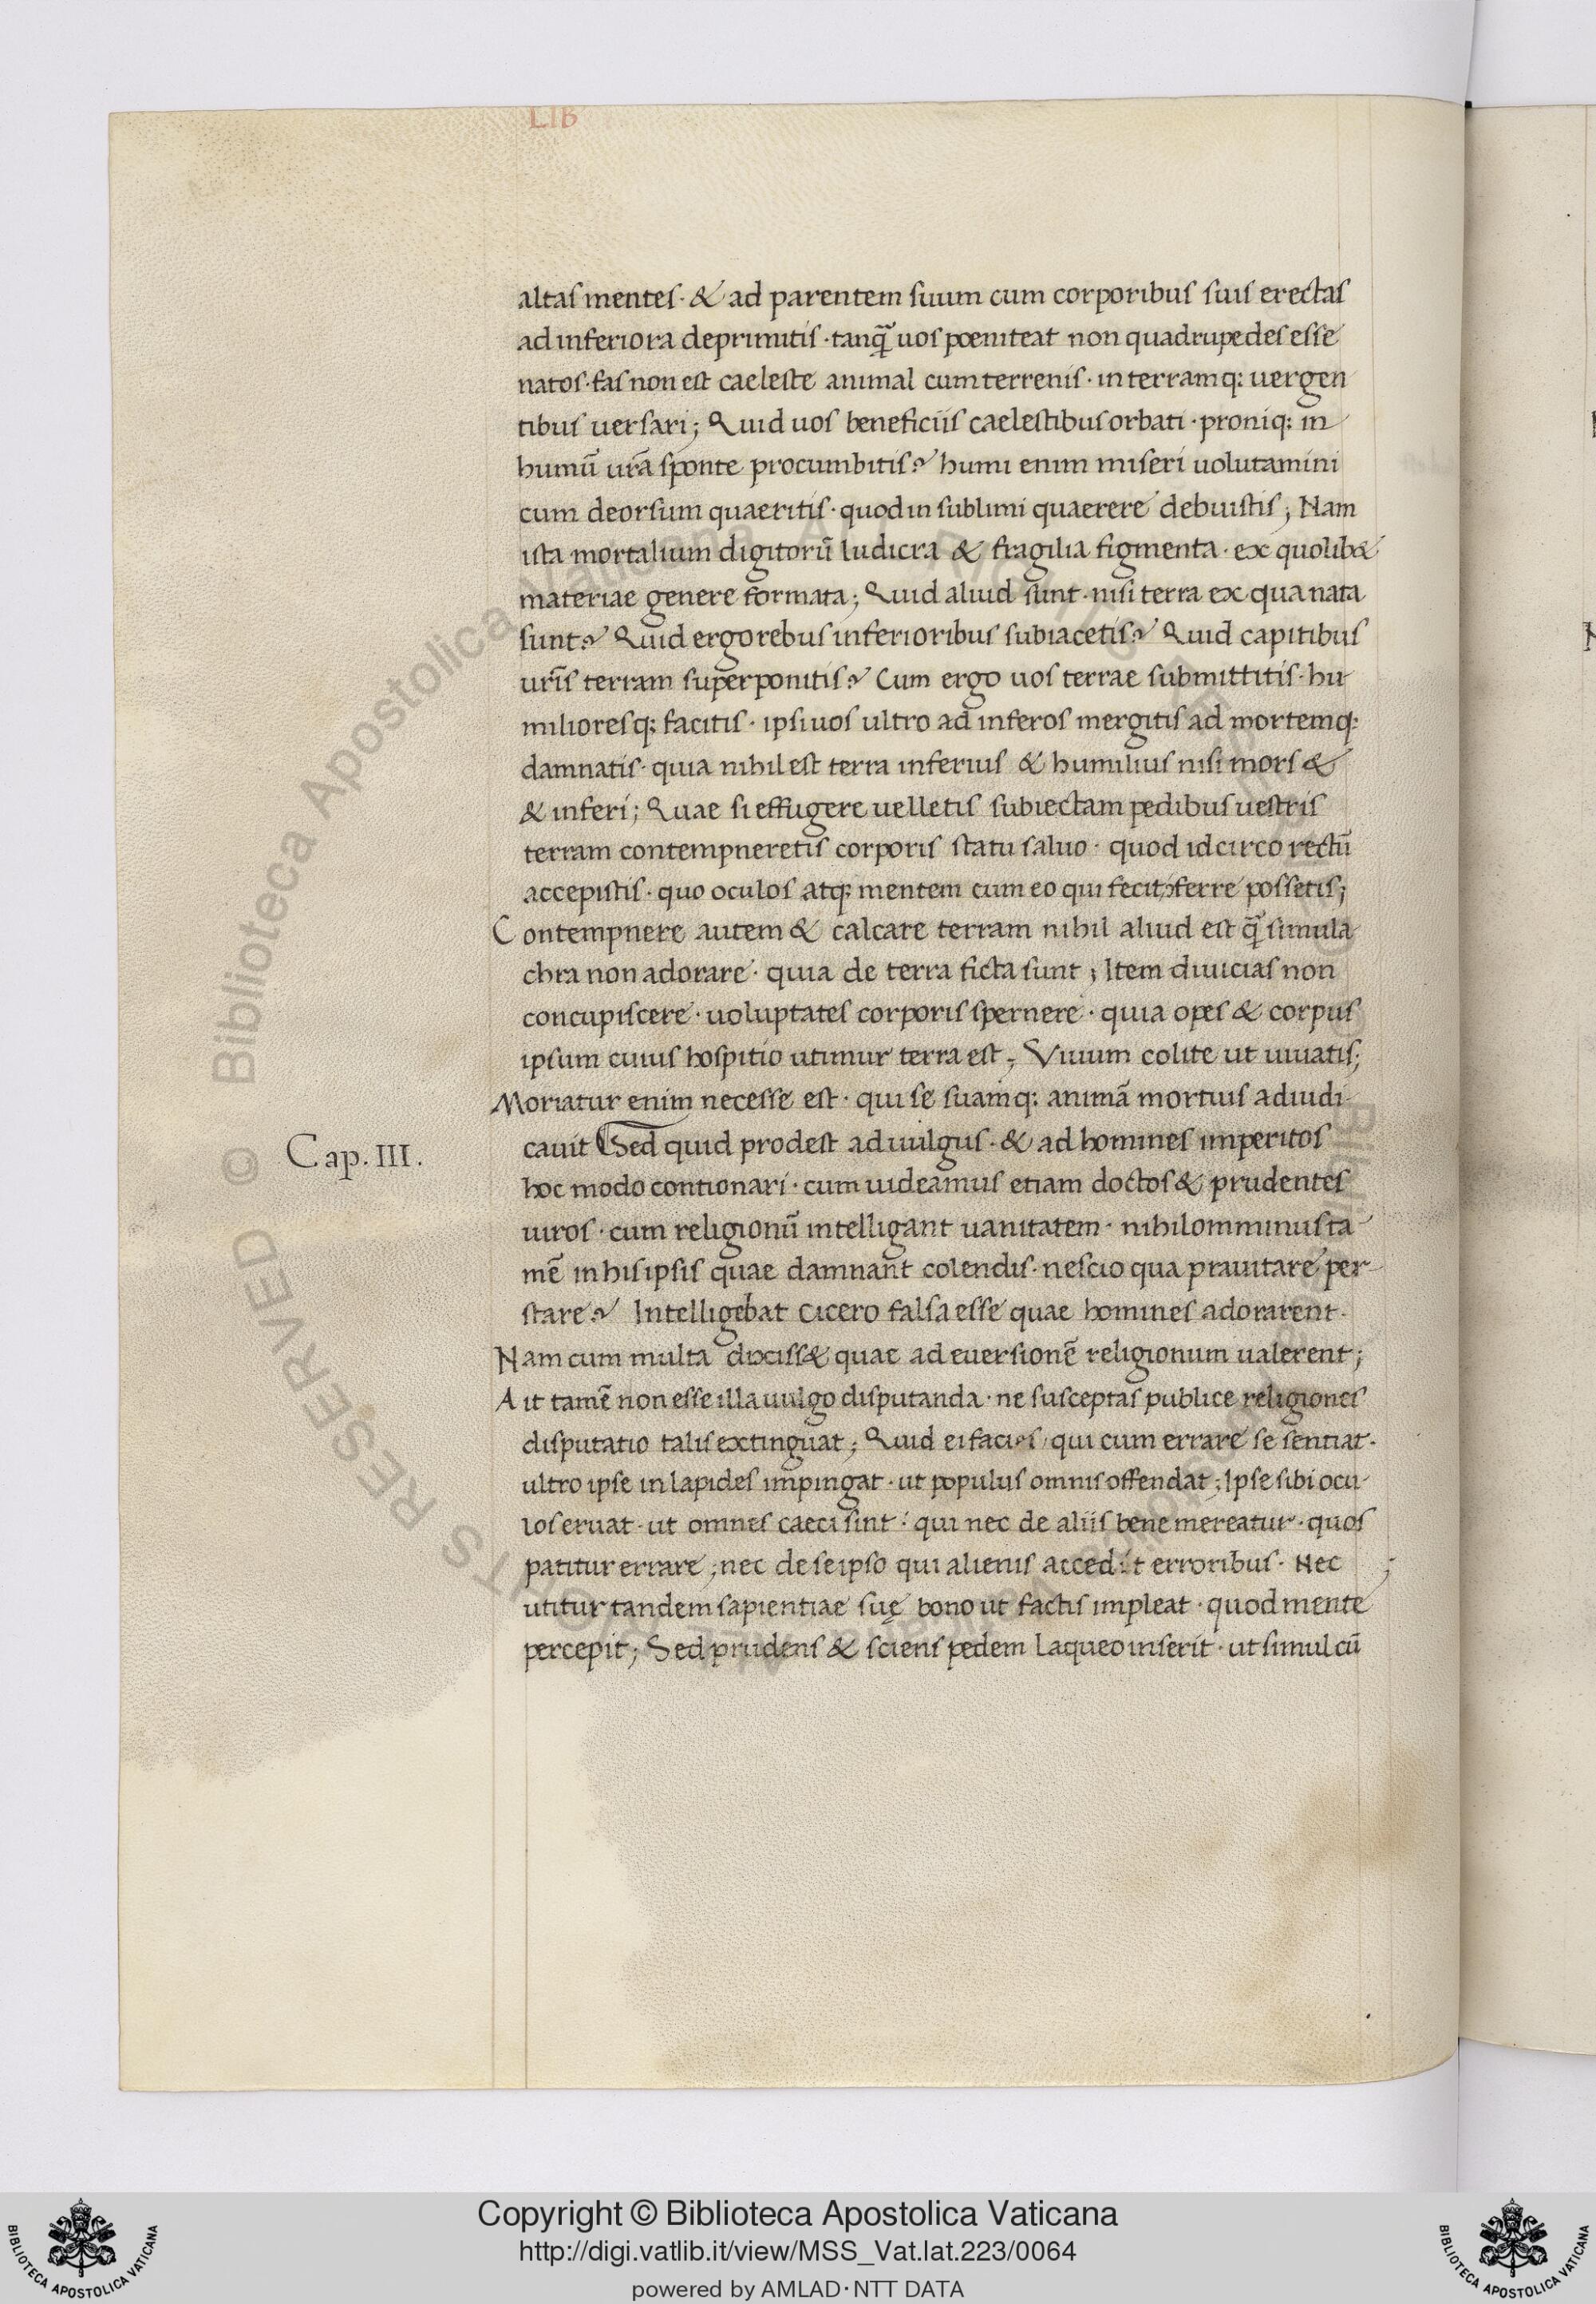 LIB
altas mentes · & ad parentem suum cum corporibus suis erectas
ad inferiora deprimitis · tanq̃ uos poeniteat non quadrupedes esse
natos · fas non est caeleste animal cum terrenis · in terramq; uergen
tibus uersari; Quid uos beneficiis caelestibus orbati · proniq; in
humũ ur̃a sponte procumbitis? humi enim miseri uolutamini
cum deorsum quaeritis · quod in sublimi quaerere debuistis; Nam
ista mortalium digitorũ ludicra & fragilia figmenta · ex quolib&
materiae genere formata; Quid aliud sunt · nisi terra ex qua nata
sunt? Quid ergo rebus inferioribus subiacetis? Quid capitibus
ur̃is terram superponitis? Cum ergo uos terrae submittitis · hu
milioresq; facitis · ipsi uos ultro ad inferos mergitis ad mortemq;
damnatis · quia nihil est terra inferius & humilius nisi mors &
& inferi; Quae si effugere uelletis subiectam pedibus uestris
terram contempneretis corporis statu saluo · quod idcirco rectũ
accepistis · quo oculos atq; mentem cum eo qui fecit ↄferre possetis;
Contempnere autem & calcare terram nihil aliud est q̃ simula
chra non adorare · quia de terra ficta sunt; Item diuicias non
concupiscere · uoluptates corporis spernere · quia opes & corpus
ipsum cuius hospitio utimur terra est; Viuum colite ut uiuatis;
Moriatur enim necesse est · qui se suamq; animã mortuis adiudi
Cap. III.
cauit Sed quid prodest ad uulgus · & ad homines imperitos
hoc modo contionari · cum uideamus etiam doctos & prudentes
uiros · cum religionũ intelligant uanitatem · nihilomminus ta
mẽ in his ipsis quae damnant colendis · nescio qua prauitate per
stare? Intelligebat Cicero falsa esse quae homines adorarent ·
Nam cum multa dixiss& quae ad euersionẽ religionum ualerent;
Ait tamẽ non esse illa uulgo disputanda · ne susceptas publice religiones
disputatio talis extinguat; Quid ei facies qui cum errare se sentiat ·
ultro ipse in lapides impingat · ut populus omnis offendat; Ipse sibi ocu
los eruat · ut omnes caeci sint · qui nec de aliis bene mereatur · quos
patitur errare; nec de se ipso qui alienis accedit erroribus · Nec
utitur tandem sapientiae suę bono ut factis impleat · quod mente
percepit; Sed prudens & sciens pedem laqueo inserit · ut simul cũ
© Biblioteca Apostolica Vaticana
Copyright © Biblioteca Apostolica Vaticana
http://digi.vatlib.it/view/MSS_Vat.lat.223/0064
powered by AMLAD·NTT DATA
BIBLIOTECA APOSTOLICA VATICANA
BIBLIOTECA APOSTOLICA VATICANA